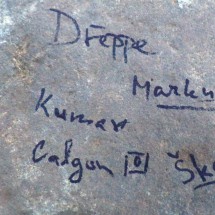 Dreppe
Marku
Kumar
Calgon 101 Šk